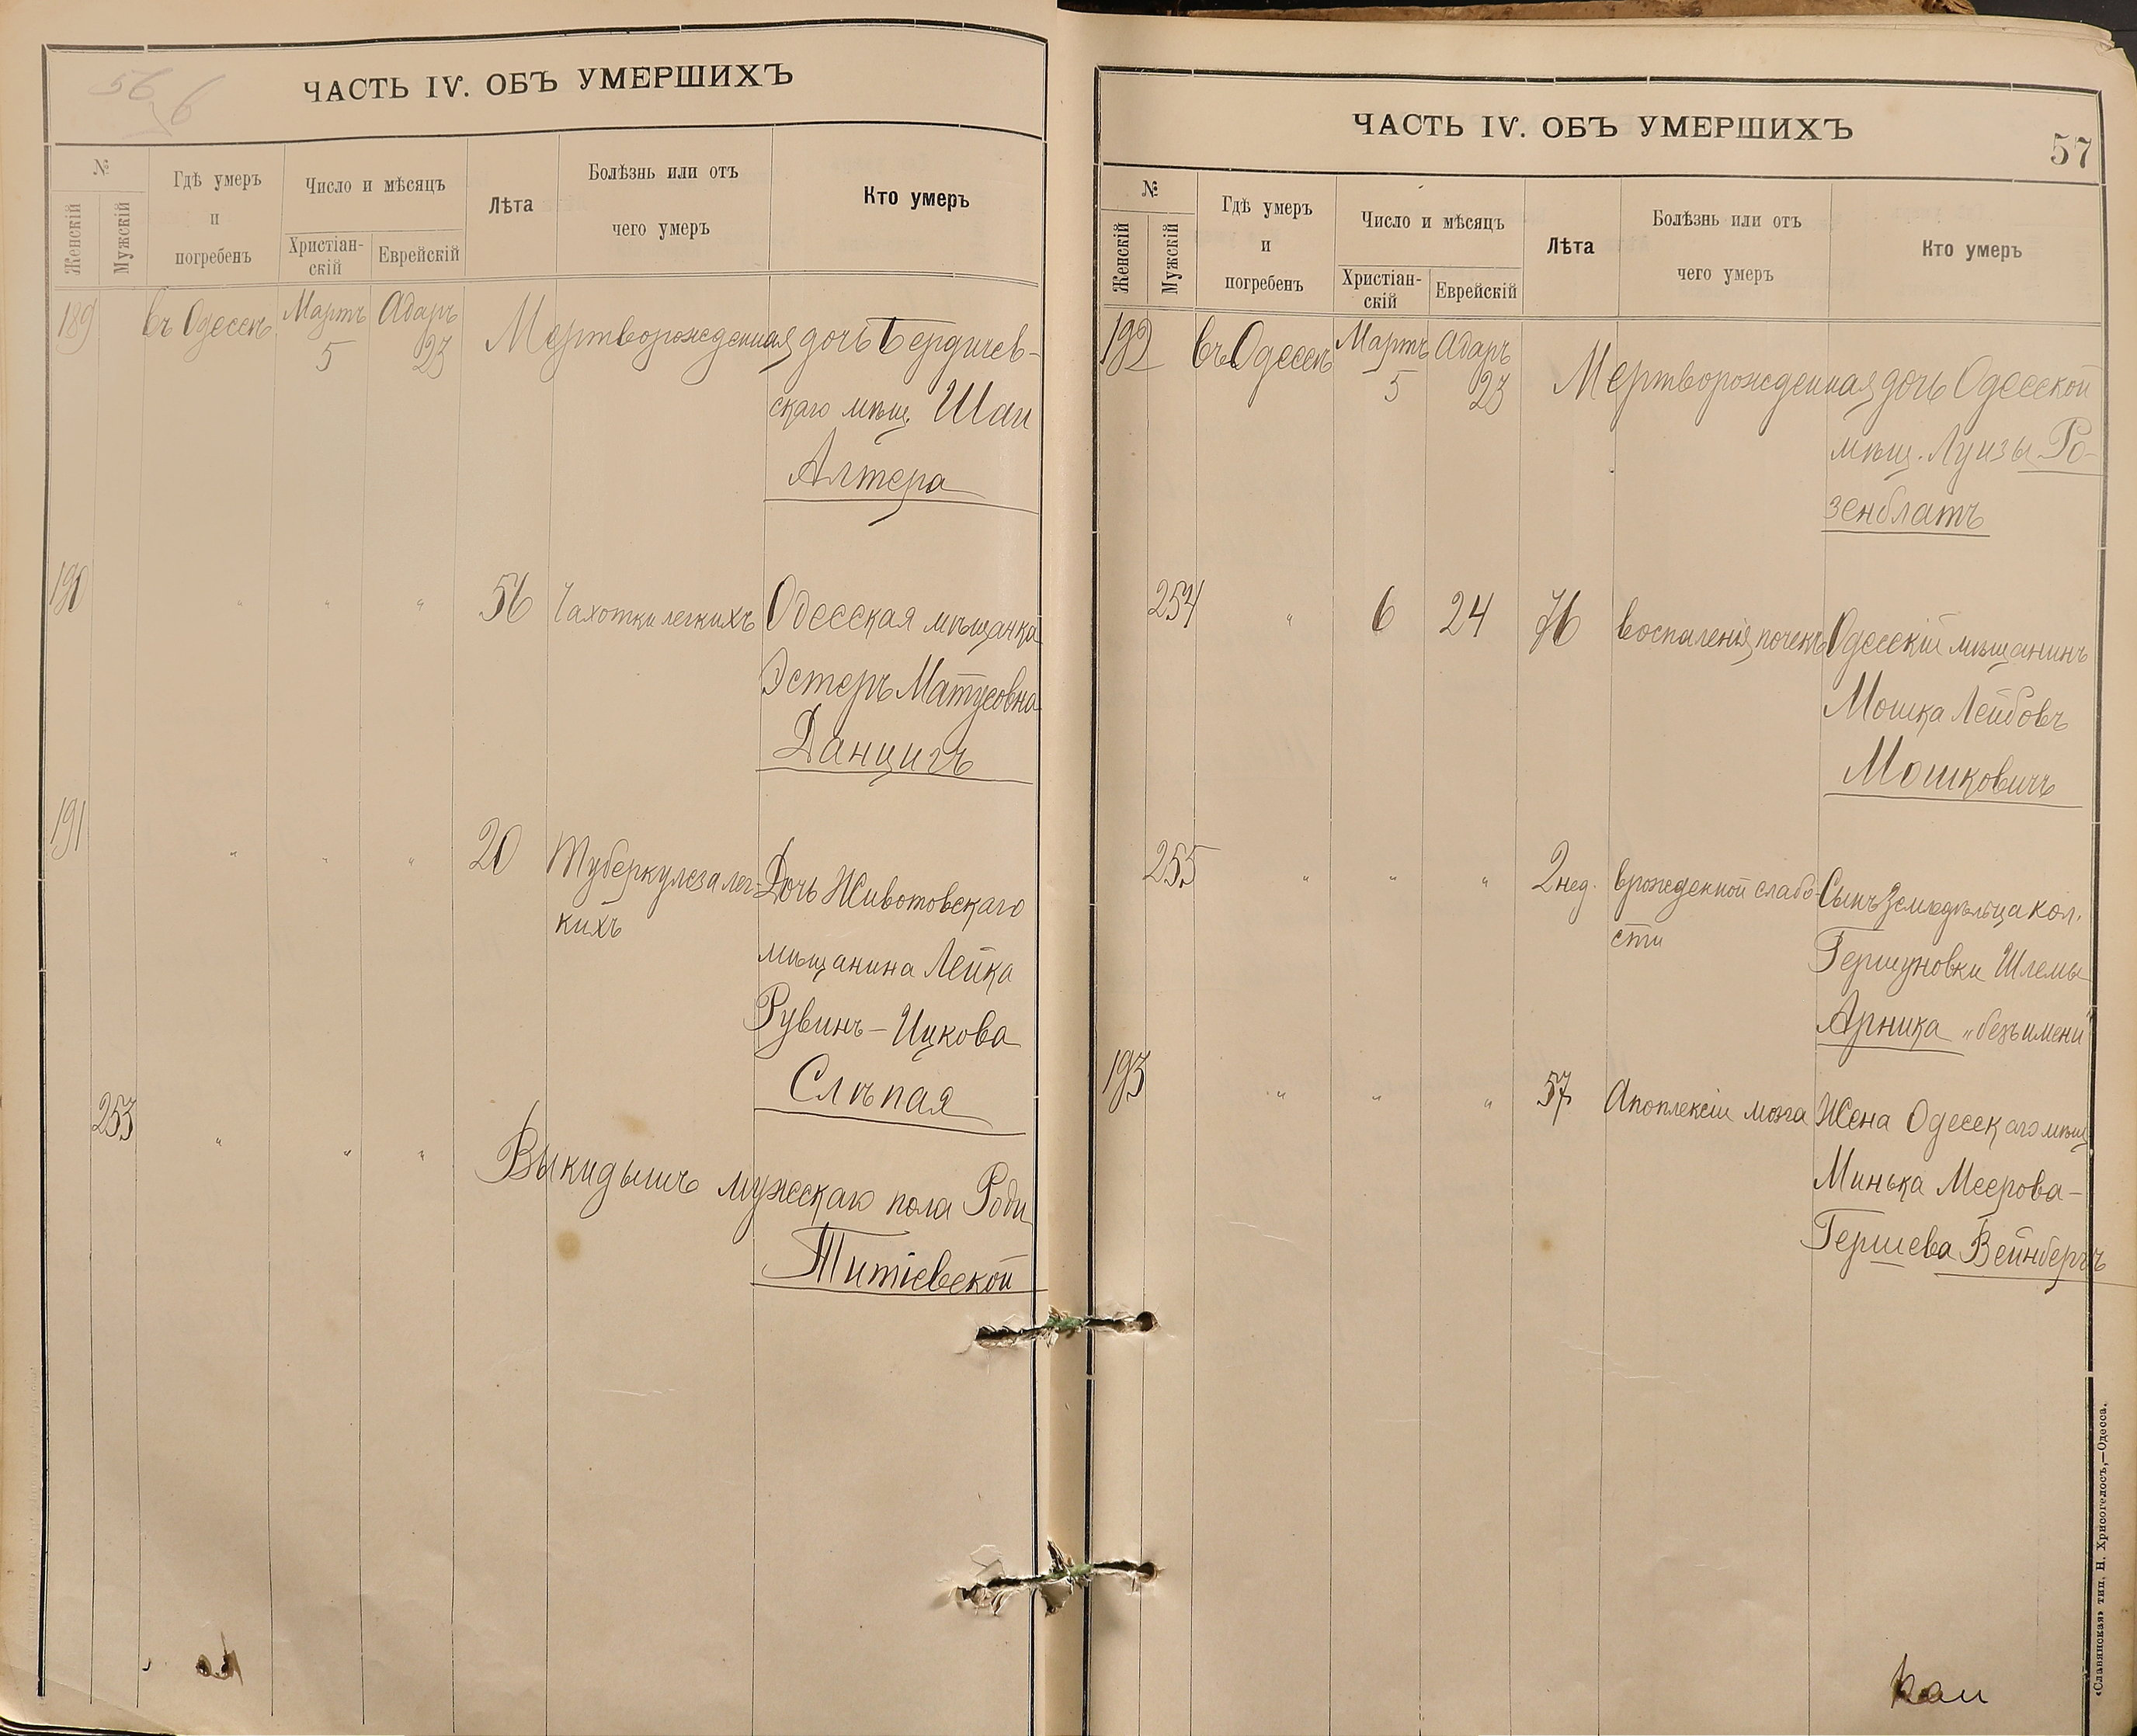 ЧАСТЬ IV. ОБЪ УМЕРШИХЪ
56
№
Женскій
Мужскій
Гдѣ умеръ
и
погребенъ
Число и мѣсяцъ
Христіан-
скій
Еврейскій
Лѣта
Болѣзнь или отъ
чего умеръ
Кто умеръ
189 въ Одессѣ Мартъ 5 Адаръ 23 Мертворожденная дочь Бердичев-
скаго мѣщ. Шаи
Алтера
190 " " " 56 Чахотки легкихъ Одесская мѣщанка
Эстеръ Матусовна
Данцигъ
191 " " " 20 Туберкулеза лег- Дочь Животовскаго
кихъ
мѣщанина Лейка
Рувинъ-Ицкова
Слѣпая
253 " " " Выкидышъ мужескаго пола Роди
Титіевской
ЧАСТЬ IV. ОБЪ УМЕРШИХЪ
57
№
Женскій
Мужскій
Гдѣ умеръ
и
погребенъ
Число и мѣсяцъ
Христіан-
скій
Еврейскій
Лѣта
Болѣзнь или отъ
чего умеръ
Кто умеръ
192 въ Одессѣ Мартъ 5 Адаръ 23 Мертворожденная дочь Одесской
мѣщ. Луизы Ро-
зенблатъ
254 " 6 24 76 воспаленія почекъ Одесскій мѣщанинъ
Мошка Лейбовъ
Мошковичъ
255 " " " 2 нед. врожденной слабо- Сынъ Земледѣльца кол.
сти
Гершуновки Шлемы
Арника „безъ имени"
193 " " " 57 Апоплексіи мозга Жена Одесскаго мѣщ.
Минька Меерова-
Гершева Вейнбергъ
«Славянская» тип. Н. Хрисогелосъ,—Одесса.